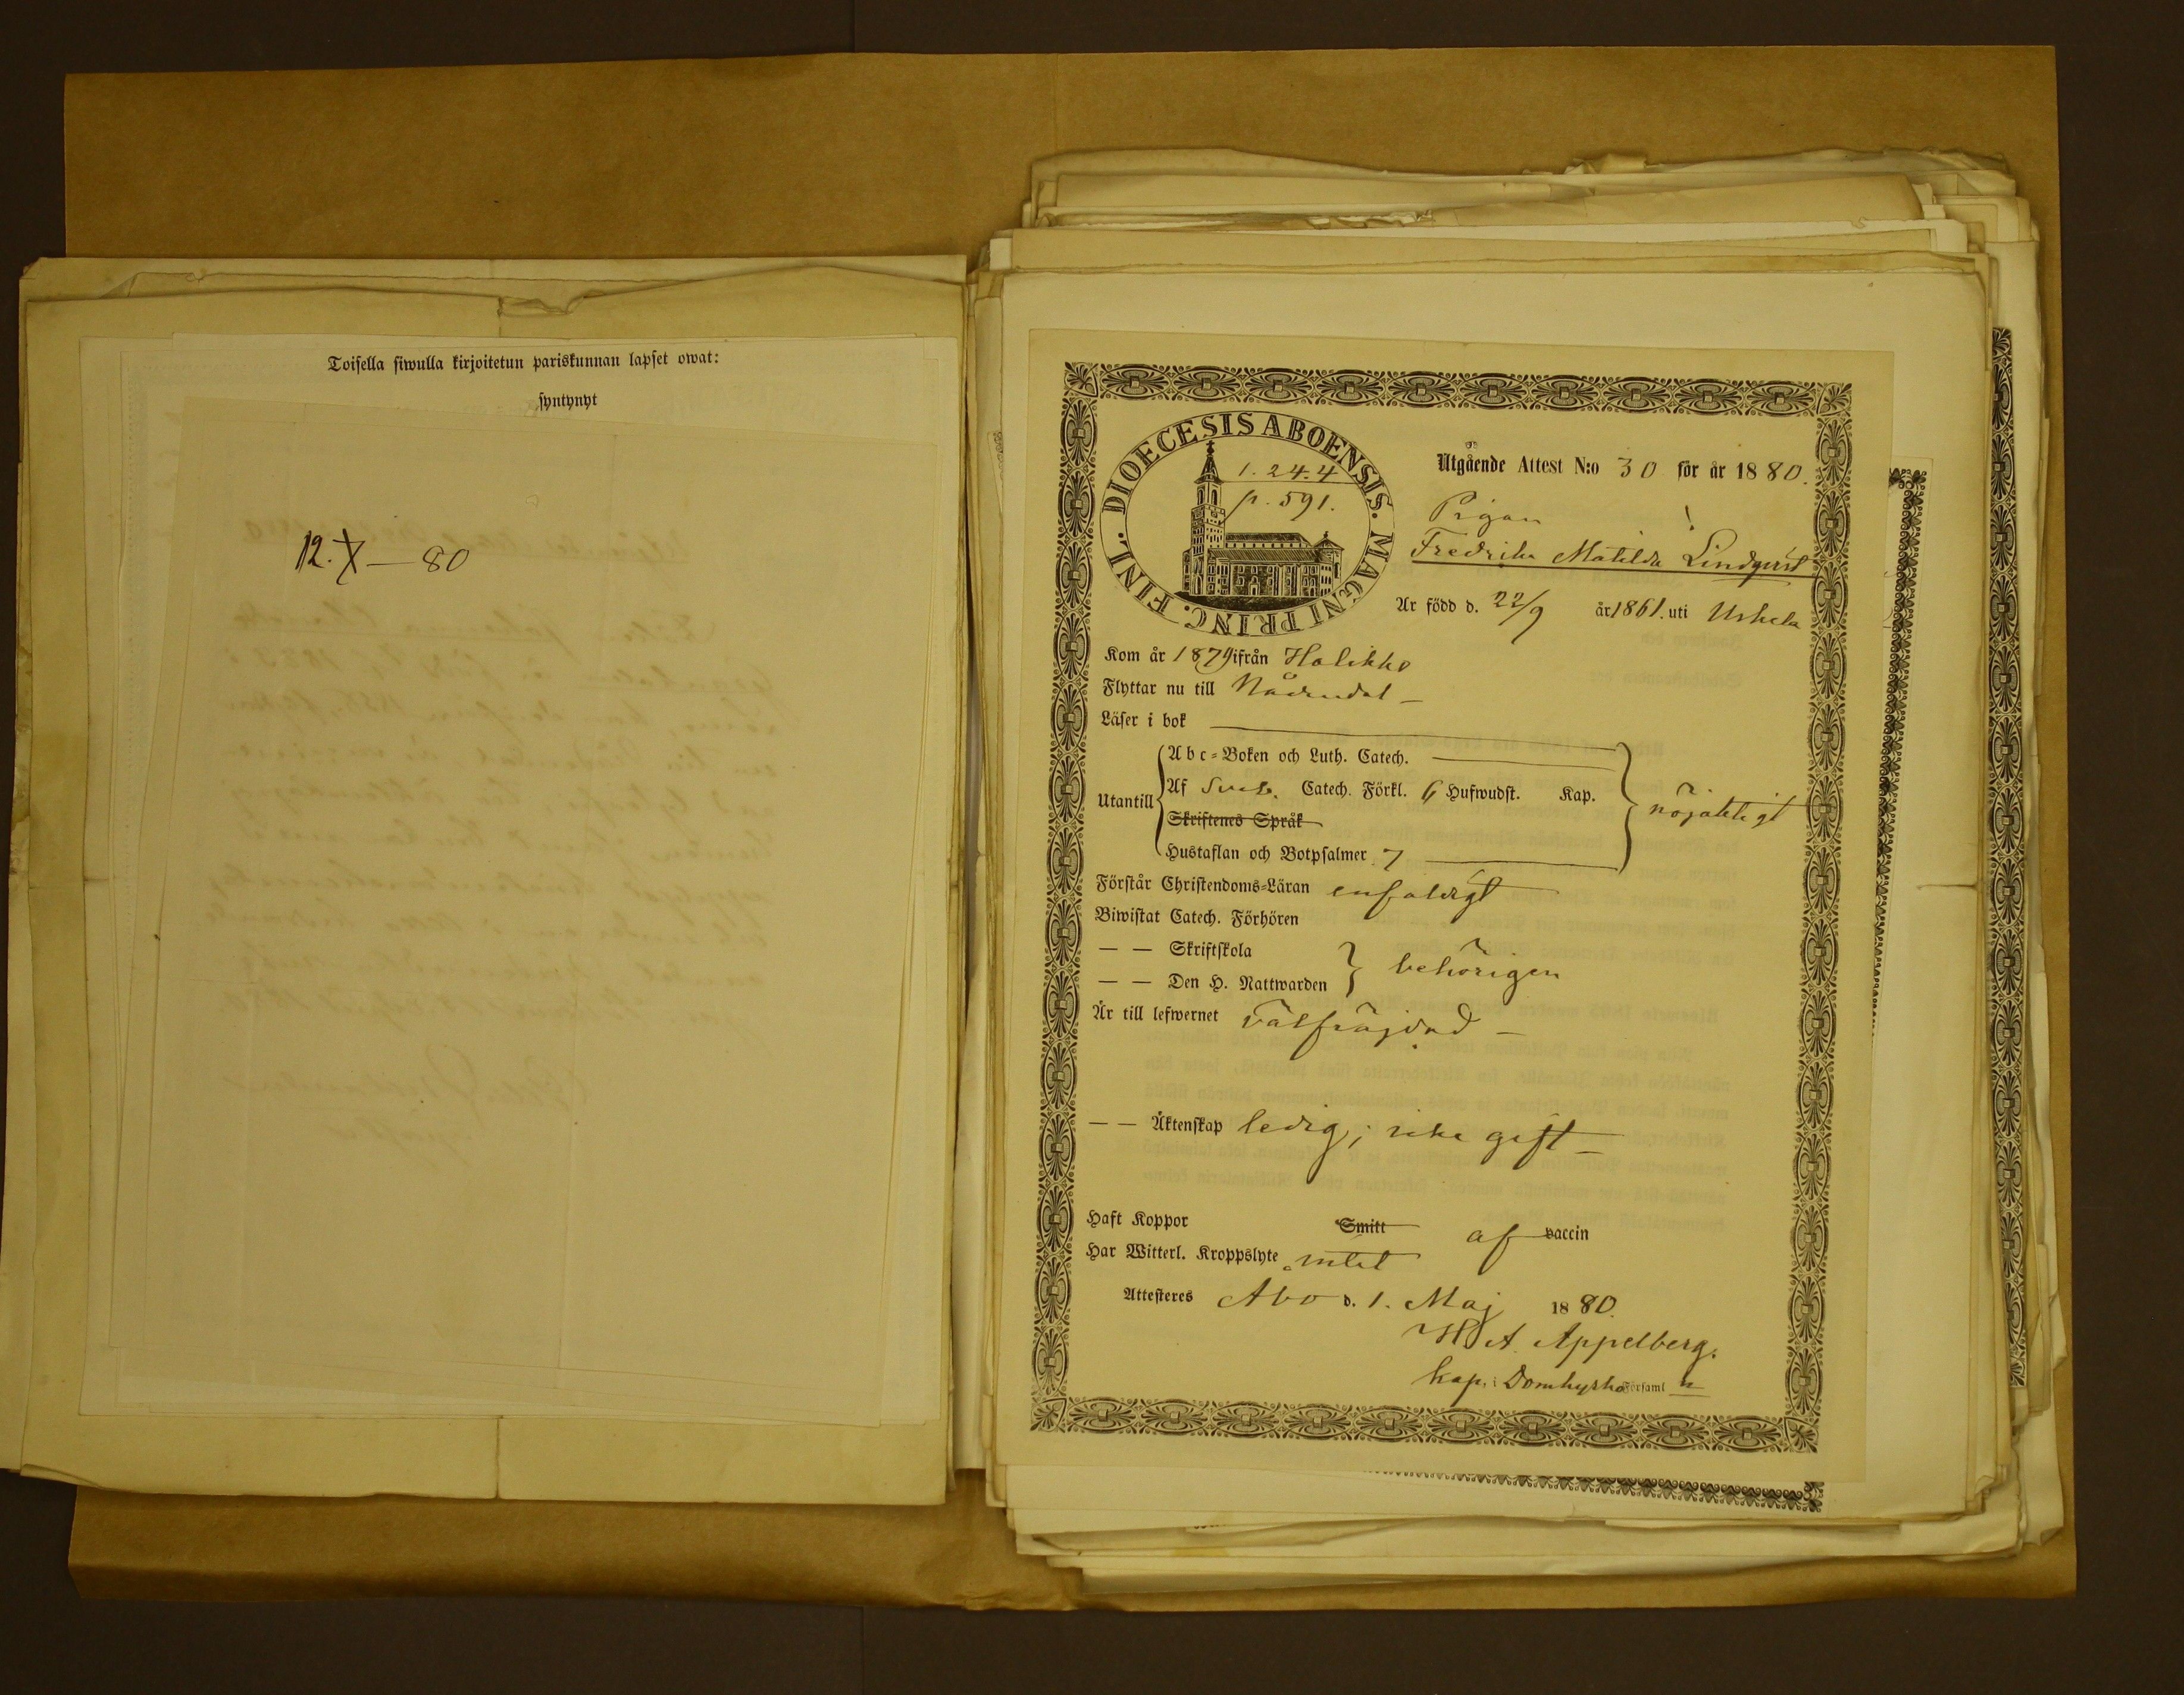 Toisella siwulla kirjoitetun pariskunnan lapset owat:
syntynyt
12. X — 80
DIOECESIS ABOENSIS. MAGNI PRINC. FINL.
1. 24. 4
p. 591.
Utgående Attest N:o 30 för år 1880.
Pigan
Fredrika Matilda Lindqvist
Är född d. 22/9 år 1861. uti Uskela
Kom år 1879 ifrån Halikko
Flyttar nu till Nådendal —
Läser i bok
Utantill
Abc-Boken och Luth. Catech.
Af Sveb. Catech. Förkl. 6 Hufwudst. Kap.
Skriftenes Språk
Hustaflan och Botpsalmer 7
nöjaktigt
Förstår Christendoms-Läran enfaldigt
Biwistat Catech. Förhören
— — Skriftskola
— — Den H. Nattwarden
behörigen
Är till lefwernet välfräjdad —
— — Äktenskap ledig; icke gift —
Haft Koppor Smitt af vaccin
Har Witterl. Kroppslyte intet
Attesteres Åbo d. 1. Maj 1880.
H. A. Appelberg.
kap. i Domkyrko Församl n